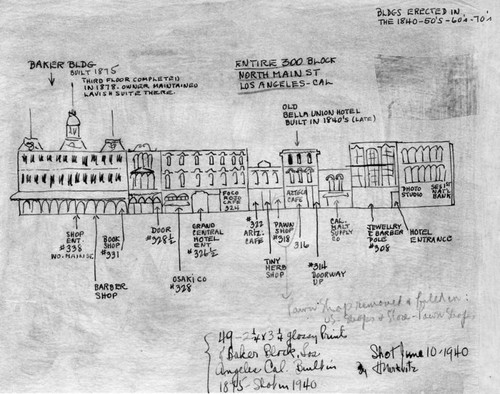 BLDGS ERECTED IN
THE 1840-50'S-60'S-70'S
BAKER BLDG
BUILT 1875
THIRD FLOOR COMPLETED
IN 1878. OWNER MAINTAINED
LAVISH SUITE THEME.
ENTIRE 300 BLOCK
NORTH MAIN ST
LOS ANGELES-CAL
OLD
BELLA UNION HOTEL
BUILT IN 1840'S (LATE)
SHOP
ENT.
#338
NO. MAIN ST
BARBER
SHOP
BOOK
SHOP
#331
DOOR
#328½
OSAKI CO
#328
GRAND
CENTRAL
HOTEL
ENT.
#326½
MOZO
CAFE
324
#322
ARIZ.
CAFE
TINY
HERB
SHOP
PAWN
SHOP
#318
AZTECA
CAFE
316
#314
DOORWAY
UP
CAL.
MALT
SUPPLY
CO
JEWELRY
& BARBER
POLE
#308
PHOTO
STUDIO
HOTEL
ENTRANCE
NAT'L
BANK
Pawn Shop removed &
49 - 2¼ x 3¼ glossy Prints
Baker Block, Los
Angeles Cal. Built in
1875 - Shot in 1940
Shot June 10-1940
By